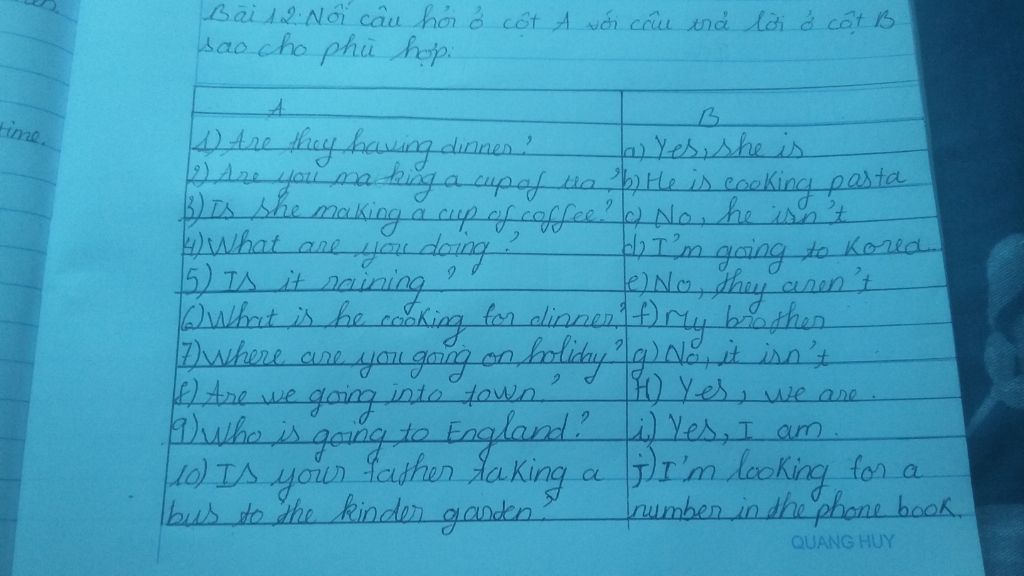 Bài 12: Nối câu hỏi ở cột A với câu trả lời ở cột B
sao cho phù hợp:
A
B
time.
1) Are they having dinner?
a) Yes, she is
2) Are you making a cup of tea?
b) He is cooking pasta
3) Is she making a cup of coffee?
c) No, he isn't
4) What are you doing?
d) I'm going to Korea.
5) Is it raining?
e) No, they aren't
6) What is he cooking for dinner?
f) My brother
7) Where are you going on holidy?
g) No, it isn't
8) Are we going into town?
H) Yes, we are.
9) Who is going to England?
i) Yes, I am.
10) Is your father taking a
j) I'm looking for a
bus to the kinder garden?
number in the phone book.
QUANG HUY